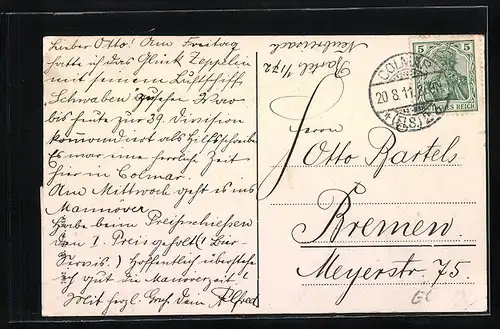 Lieber Otto! Am Freitag
hatte ich das Glück Zeppelin
mit seinem Luftschiff
"Schwaben" zu sehen. War
bis heute zur 39. Division
kommandiert als Hilfsschreiber
Es war eine herrliche Zeit
hier in Colmar.
Am Mittwoch geht es ins
Manöver
Habe beim Preisschiessen
den 1. Preis geholt (1
Servis.) Hoffentlich überstehe
ich gut die Manöverzeit!
Mit herzl. Gruß Dein Alfred
Bartel 11/172
Neubreisach
COLMAR
20.8.11.
(ELS.)
5 5
DEUTSCHES REICH
Herrn
Otto Bartels
Bremen.
Meyerstr. 75.